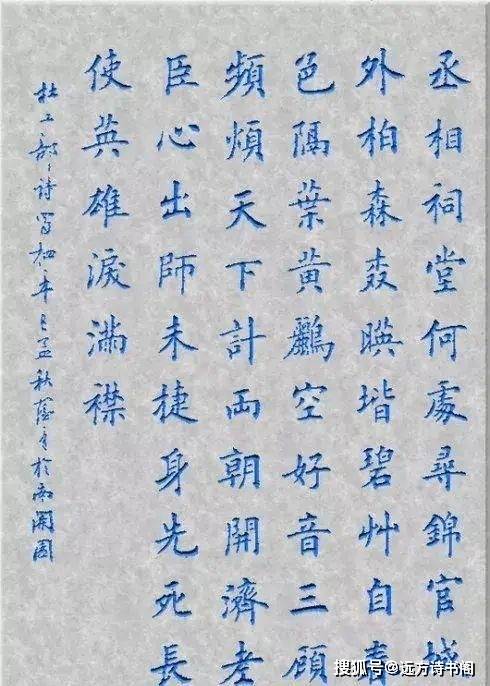 丞相祠堂何處尋錦官城
外柏森森暎堦碧艸自春
色隔葉黄鸝空好音三顧
頻煩天下計両朝開濟老
臣心出師未捷身先死長
使英雄淚滿襟
杜工部詩 孟秋
搜狐号@远方诗书阁